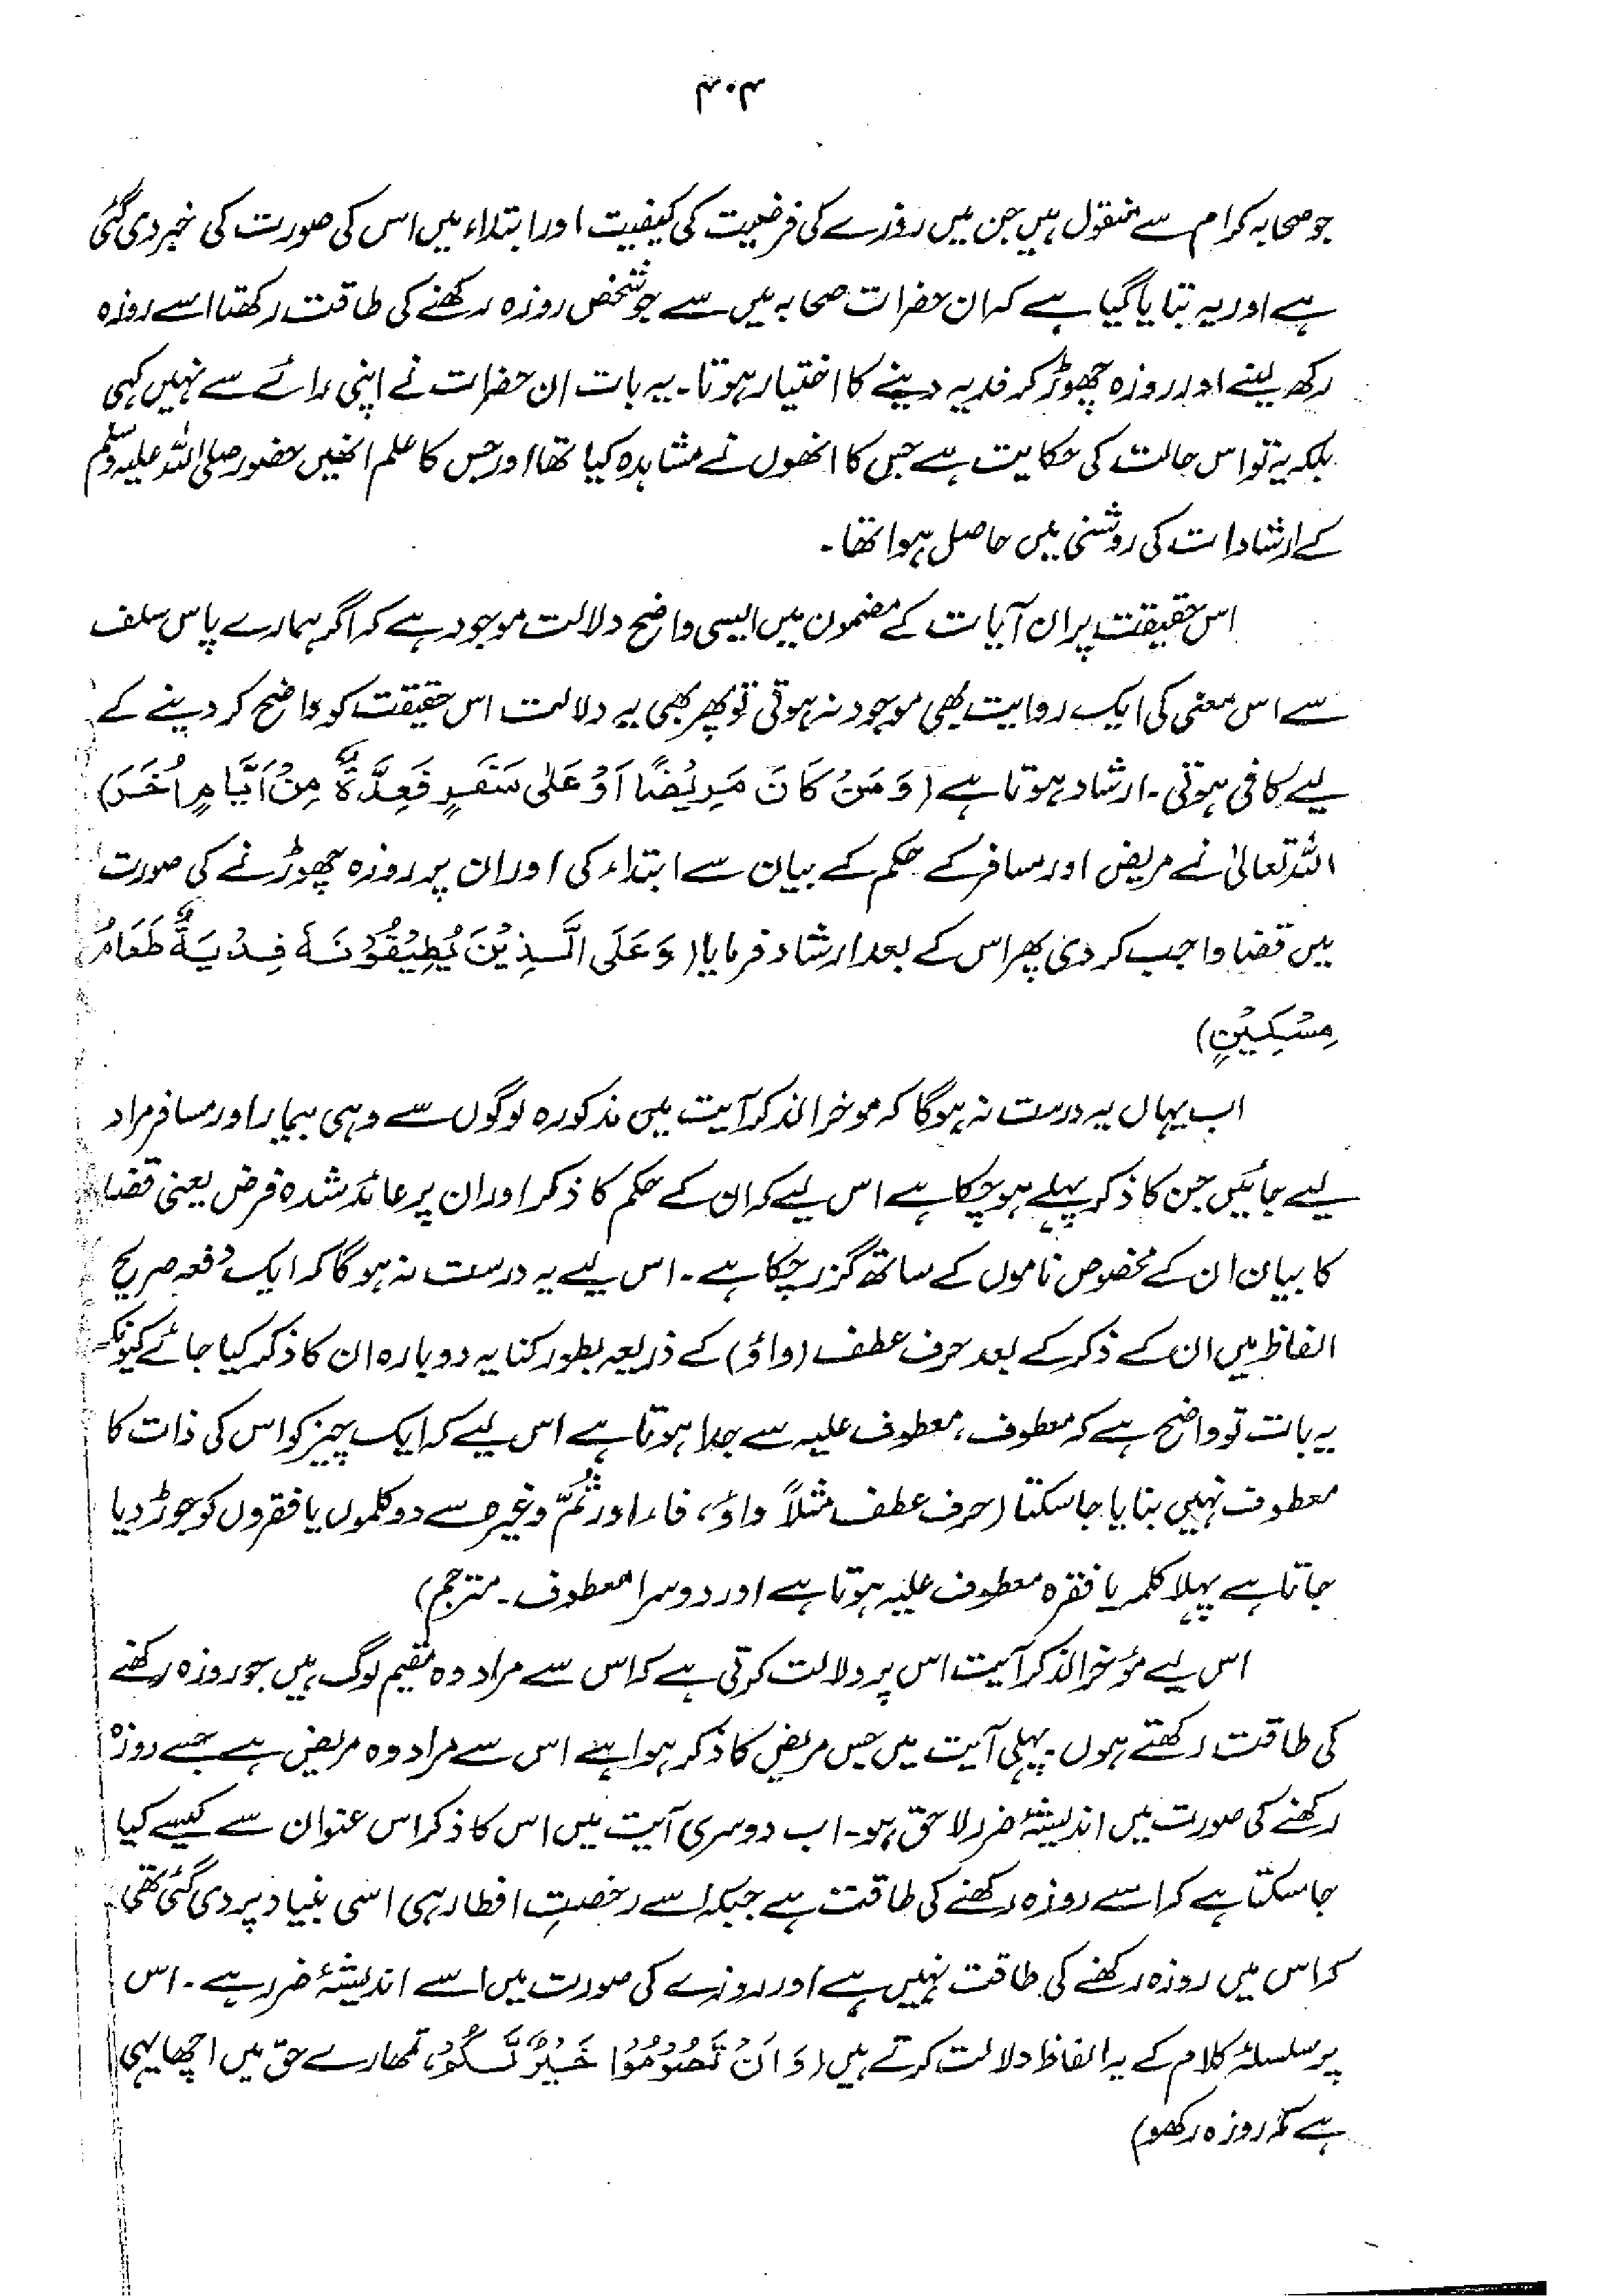 ۴۰۴
جو صحابہ کرام سے منقول ہیں جن میں روزے کی فرضیت کی کیفیت اور ابتداء میں اس کی صورت کی خبر دی گئی
ہے اور یہ بتایا گیا ہے کہ ان حضرات صحابہ میں سے جو شخص روزہ رکھنے کی طاقت رکھتا اسے روزہ
رکھ لینے اور روزہ چھوڑ کر فدیہ دینے کا اختیار ہوتا۔ یہ بات ان حضرات نے اپنی رائے سے نہیں کہی
بلکہ یہ تو اس حالت کی حکایت ہے جس کا انھوں نے مشاہدہ کیا تھا اور جس کا علم انھیں حضور صلی اللہ علیہ وسلم
کے ارشادات کی روشنی میں حاصل ہوا تھا۔
اس حقیقت پر ان آیات کے مضمون میں ایسی واضح دلالت موجود ہے کہ اگر ہمارے پاس سلف
سے اس معنی کی ایک روایت بھی موجود نہ ہوتی تو پھر بھی یہ دلالت اس حقیقت کو واضح کر دینے کے
لیے کافی ہوتی۔ ارشاد ہوتا ہے (وَ مَنْ كَانَ مَرِيْضًا اَوْ عَلٰى سَفَرٍ فَعِدَّةٌ مِنْ اَيَّامٍ اُخَرَ)
اللہ تعالیٰ نے مریض اور مسافر کے حکم کے بیان سے ابتداء کی اور ان پر روزہ چھوڑنے کی صورت
میں قضا واجب کر دی پھر اس کے بعد ارشاد فرمایا (وَ عَلَى الَّذِيْنَ يُطِيْقُوْنَهٗ فِدْيَةٌ طَعَامُ
مِسْكِيْنٍ)
اب یہاں یہ درست نہ ہوگا کہ موخر الذکر آیت میں مذکورہ لوگوں سے وہی بیمار اور مسافر مراد
لیے جائیں جن کا ذکر پہلے ہو چکا ہے اس لیے کہ ان کے حکم کا ذکر اور ان پر عائد شدہ فرض یعنی قضا
کا بیان ان کے مخصوص ناموں کے ساتھ گزر چکا ہے۔ اس لیے یہ درست نہ ہوگا کہ ایک دفعہ صریح
الفاظ میں ان کے ذکر کے بعد حرف عطف (واؤ) کے ذریعہ بطور کنایہ دوبارہ ان کا ذکر کیا جائے کیونکہ
یہ بات تو واضح ہے کہ معطوف، معطوف علیہ سے جدا ہوتا ہے اس لیے کہ ایک چیز کو اس کی ذات کا
معطوف نہیں بنایا جا سکتا (حرف عطف مثلاً واؤ، فاء اور ثُمَّ وغیرہ سے دو کلموں یا فقروں کو جوڑ دیا
جاتا ہے پہلا کلمہ یا فقرہ معطوف علیہ ہوتا ہے اور دوسرا معطوف۔ مترجم)
اس لیے مؤخر الذکر آیت اس پر دلالت کرتی ہے کہ اس سے مراد وہ مقیم لوگ ہیں جو روزہ رکھنے
کی طاقت رکھتے ہوں۔ پہلی آیت میں جس مریض کا ذکر ہوا ہے اس سے مراد وہ مریض ہے جسے روزہ
رکھنے کی صورت میں اندیشۂ ضرر لاحق ہو۔ اب دوسری آیت میں اس کا ذکر اس عنوان سے کیسے کیا
جا سکتا ہے کہ اسے روزہ رکھنے کی طاقت ہے جبکہ اسے رخصتِ افطار ہی اسی بنیاد پر دی گئی تھی
کہ اس میں روزہ رکھنے کی طاقت نہیں ہے اور روزے کی صورت میں اسے اندیشۂ ضرر ہے۔ اس
پر سلسلۂ کلام کے یہ الفاظ دلالت کرتے ہیں (وَ اَنْ تَصُوْمُوْا خَيْرٌ لَّكُمْ، تمھارے حق میں اچھا یہی
ہے کہ روزہ رکھو)